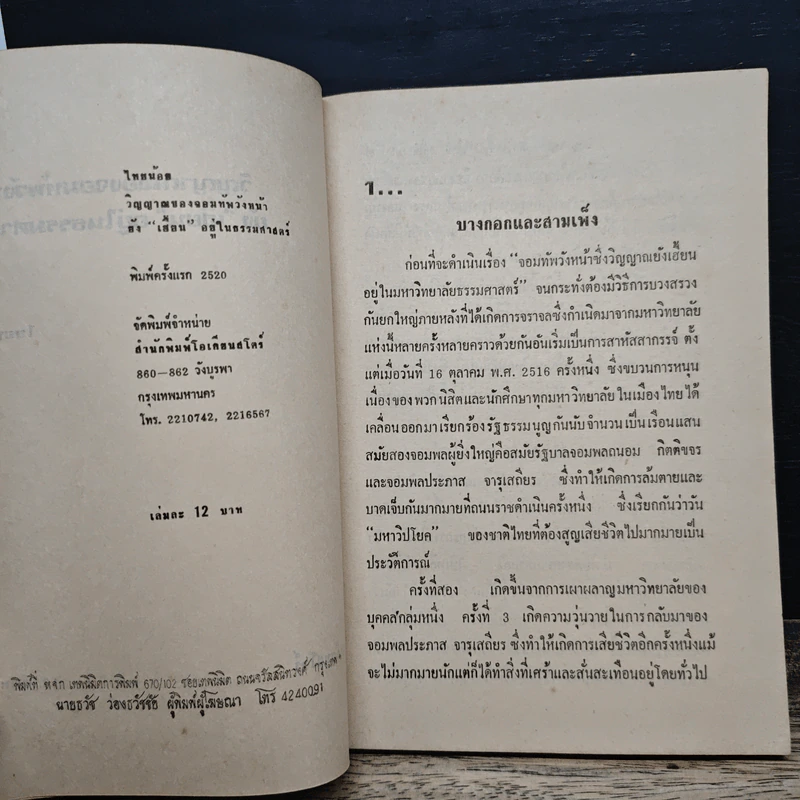 ไทยน้อย
วิญญาณของจอมทัพวังหน้า
ยัง “เฮี้ยน” อยู่ในธรรมศาสตร์
พิมพ์ครั้งแรก 2520
จัดพิมพ์จำหน่าย
สำนักพิมพ์โอเดียนสโตร์
860–862 วังบูรพา
กรุงเทพมหานคร
โทร. 2210742, 2216567
เล่มละ 12 บาท
พิมพ์ที่ หจก เทคนิมิตการพิมพ์ 670/102 ซอยเทพนิมิต ถนนจรัลสนิทวงศ์ กรุงเทพฯ
นายธวัช ว่องธวัชชัย ผู้พิมพ์ผู้โฆษณา โทร 4240091
1...
บางกอกและสามเพ็ง
ก่อนที่จะดำเนินเรื่อง “จอมทัพวังหน้าซึ่งวิญญาณยังเฮี้ยน
อยู่ในมหาวิทยาลัยธรรมศาสตร์” จนกระทั่งต้องมีวิธีการบวงสรวง
กันยกใหญ่ภายหลังที่ได้เกิดการจราจลซึ่งกำเนิดมาจากมหาวิทยาลัย
แห่งนี้หลายครั้งหลายคราวด้วยกันอันเริ่มเป็นการสาหัสสากรรจ์ ตั้ง
แต่เมื่อวันที่ 16 ตุลาคม พ.ศ. 2516 ครั้งหนึ่ง ซึ่งขบวนการหนุน
เนื่องของพวกนิสิตและนักศึกษาทุกมหาวิทยาลัยในเมืองไทยได้
เคลื่อนออกมาเรียกร้องรัฐธรรมนูญกันนับจำนวนเป็นเรือนแสน
สมัยสองจอมพลผู้ยิ่งใหญ่คือสมัยรัฐบาลจอมพลถนอม กิตติขจร
และจอมพลประภาส จารุเสถียร ซึ่งทำให้เกิดการล้มตายและ
บาดเจ็บกันมากมายที่ถนนราชดำเนินครั้งหนึ่ง ซึ่งเรียกกันว่าวัน
“มหาวิปโยค” ของชาติไทยที่ต้องสูญเสียชีวิตไปมากมายเป็น
ประวัติการณ์
ครั้งที่สอง เกิดขึ้นจากการเผาผลาญมหาวิทยาลัยของ
บุคคลกลุ่มหนึ่ง ครั้งที่ 3 เกิดความวุ่นวายในการกลับมาของ
จอมพลประภาส จารุเสถียร ซึ่งทำให้เกิดการเสียชีวิตอีกครั้งหนึ่งแม้
จะไม่มากมายนักแต่ก็ได้ทำสิ่งที่เศร้าและสั่นสะเทือนอยู่โดยทั่วไป